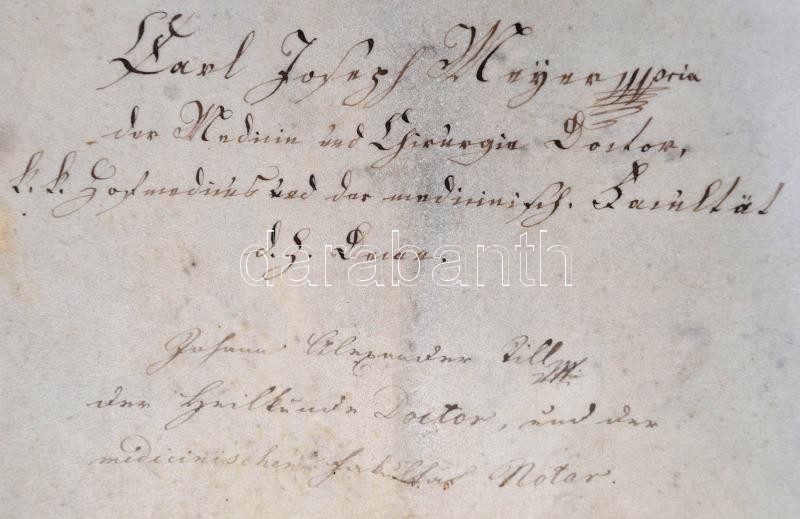 Carl Joseph Meyer mpria
der Medicin und Chirurgie Doctor,
k. k. Hofmedicus und der medicinisch. Facultät
d. Z. Decan.
darabanth
Johann Alexander Till mp
der Heilkunde Doctor, und der
medicinischen Fakultät Notar.